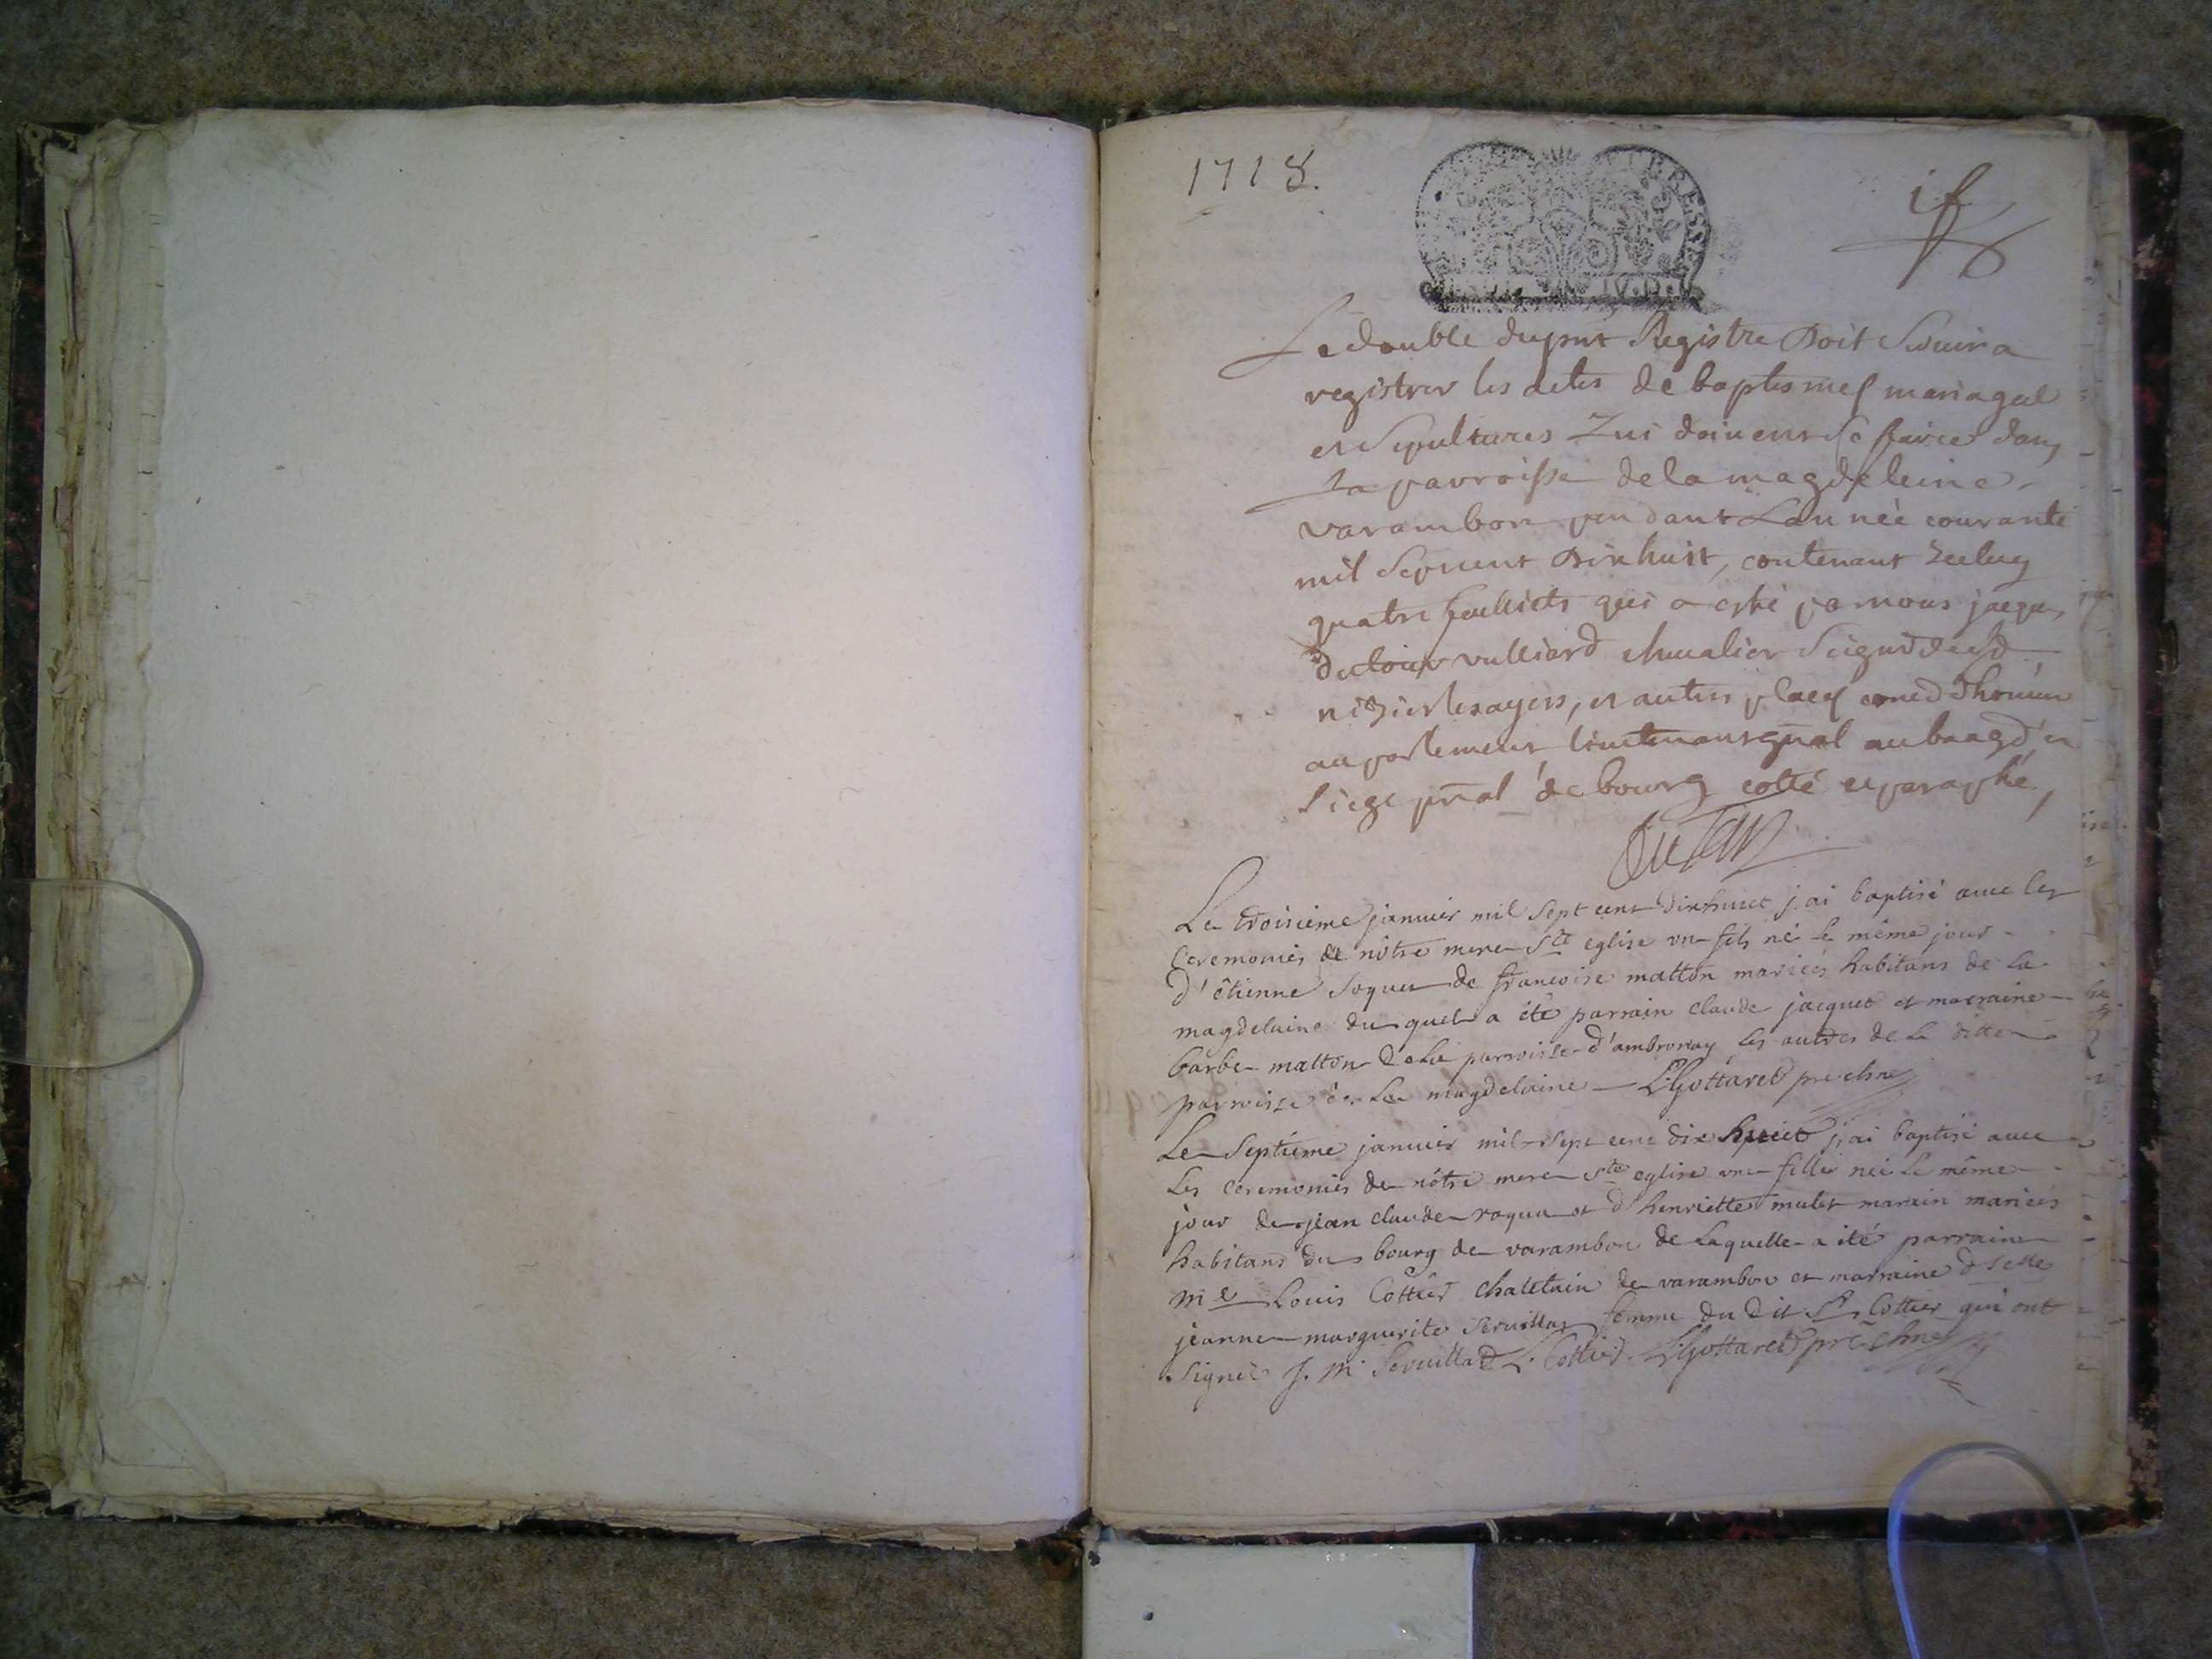 1718.
Le double du pnt Registre Doit Seruir a
registrer les actes de baptesmes mariages
et Sepultures Qui doiuent Se faire dans
La parroisse de la magdeleine
varambon pendant Lannèe courante
mil Sept cent Dixhuit, contenant
quatre feulliets qui a esté par nous jacques
vulliard cheualier
et autres places
au parlement lieutenant gnal au baage et
Siege pnal de bourg cotté et paraphé,
Le troisieme januier mil Sept cent Dixhuict j'ai baptisé auec les
Ceremonies de nôtre mere Ste eglise un fils né le même jour
d'êtienne de francoise matton mariés habitans de La
magdelaine du quel a été parrain claude jacquet et marraine
barbe matton de La parroisse d'ambronay les autres de La ditte
parroisse de La magdelaine L. Gottaret pre
Le Septieme januier mil Sept cent dix huict j'ai baptisé auec
Les ceremonies de nôtre mere Ste eglise une fille neé Le même
jour de jean claude et d'henriette mulet mariés
habitans du bourg de varambon de Laquelle a été parrain
me Louis Cottier chatelain de varambon et marraine
jeanne marguerite femme du Dit Sr Cottier qui ont
Signé J. M. L. Cottier. L. Gottaret pre